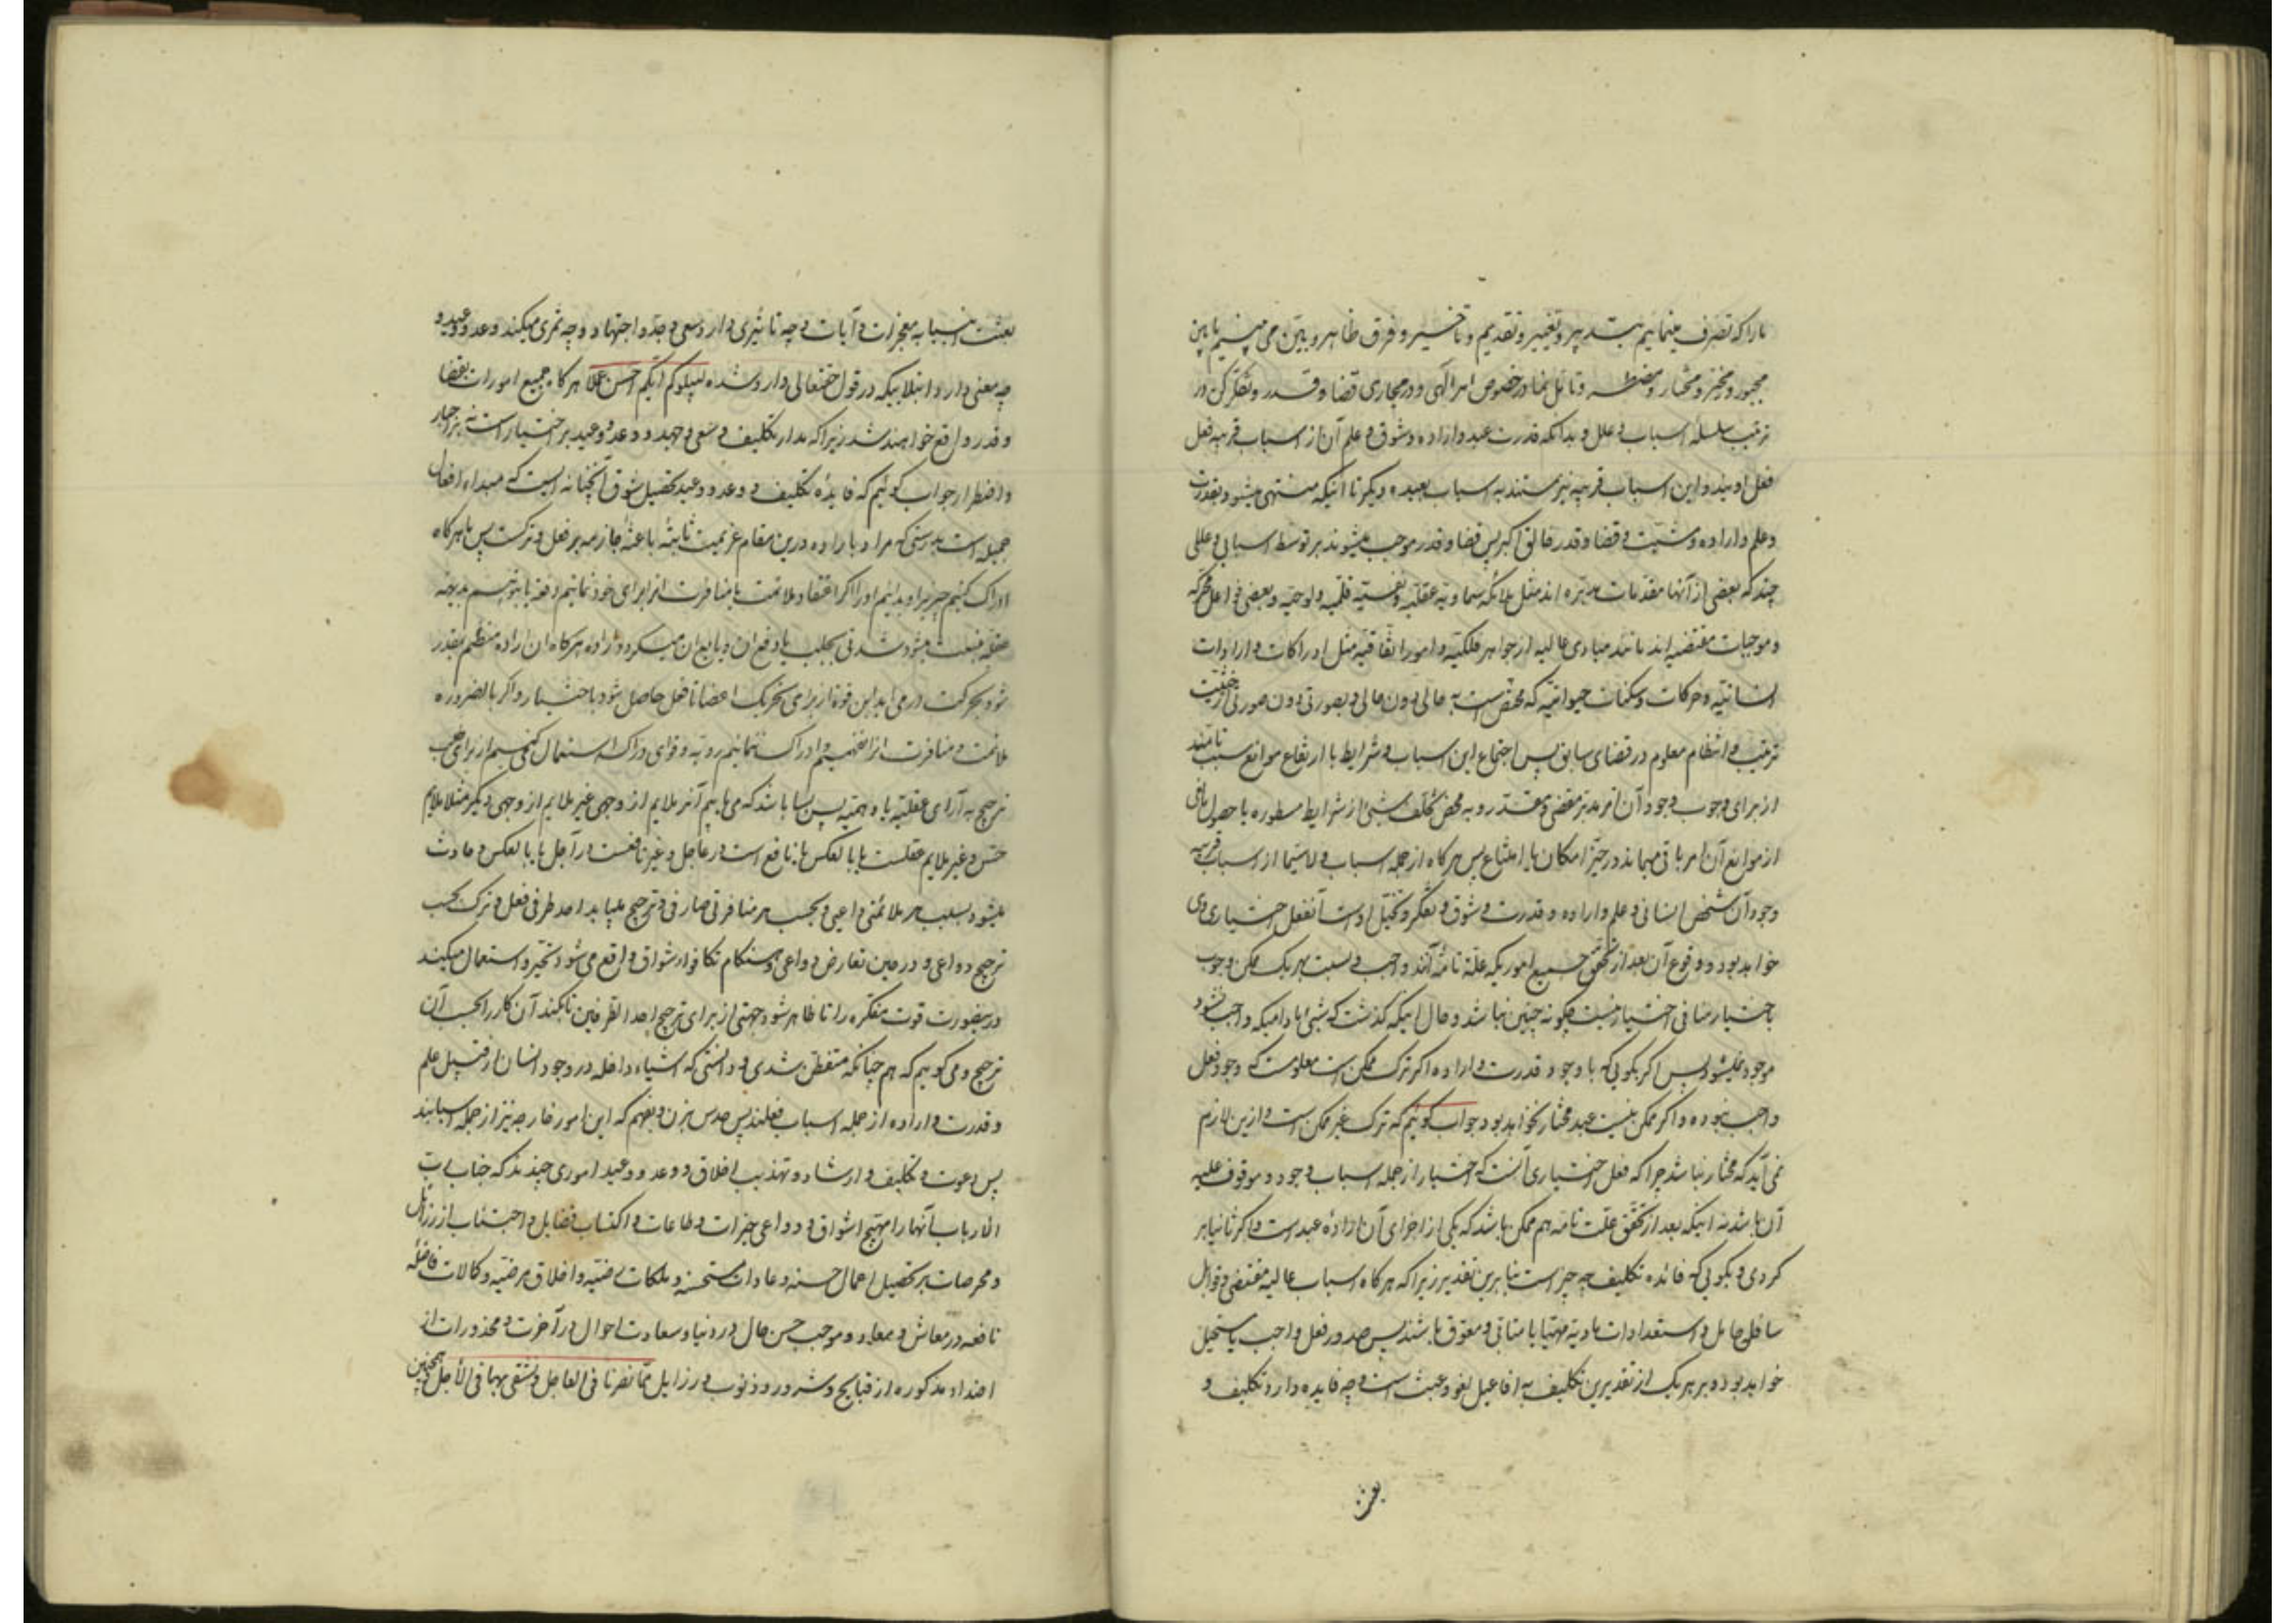 ما را که تصرف مینمائیم بتدبیر و تغییر و تقدیم و تاخیر و فرق ظاهر و بین می بینیم ما بین
مجبور و مخیر و مختار و مضطر و تامل نما در خصوص امر الهی و در مجاری قضا و قدر و تفکر کن در
ترتیب سلسله اسباب و علل و بدانکه قدرت عبد و اراده و شوق و علم آن از اسباب قریبه فعل
فعل اویند و این اسباب قریبه نیز مستند به اسباب بعیده دیگر تا اینکه منتهی میشود بقدرت
و علم و اراده و مشیت و قضا و قدر خالق اکبر پس قضا و قدر موجب میشوند بر توسط اسبابی و عللی
چند که بعضی از آنها مقدمات مدبره اند مثل ملائکه سماویه عقلیه و نفسیه قلمیه و لوحیه و بعضی فواعل محرکه
و موجبات مقتضیه اند مانند مبادی عالیه از جواهر فلکیه و امور اتفاقیه مثل ادراکات و ارادات
انسانیه و حرکات و سکنات حیوانیه که مختص است به حالی دون حالی و بصورتی دون صورتی از حیثیت
ترتیب و انتظام معلوم در قضای سابق پس اجتماع این اسباب و شرایط با ارتفاع موانع سبب تامند
از برای وجوب وجود آن امر مدبر مقضی و مقدر و به محض تخلف شیئ از شرایط مسطوره یا حصول مانعی
از موانع آن امر باقی میماند در حیز امکان یا امتناع پس هر کاه از جمله اسباب و لاسیما از اسباب قریبه
وجود آن شخص انسانی و علم و اراده و قدرت و شوق و تفکر و تخیل اوست آنفعل اختیاری وی
خواهد بود و وقوع آن بعد از تحقق جمیع اموریکه علة تامه آنند واجب و نسبت بهر یک ممکن و وجوب
باختیار منافی اختیار نیست چگونه چنین نباشد و حال اینکه گذشت که شیئ مادامیکه واجب نشود
موجود نمیشود پس اگر بگویی که با وجود قدرت و اراده اگر ترک ممکن است معلومست که وجود فعل
واجب نبوده و اگر ممکن نیست عبد مختار نخواهد بود جواب گوئیم که ترک غیر ممکن است و ازین لازم
نمی آید که مختار نباشد چرا که فعل اختیاری آنست که اختیار از جمله اسباب وجود و موقوف علیه
آن باشد نه اینکه بعد از تحقق علت تامه هم ممکن باشد که یکی از اجزای آن اراده عبد است و اگر ثانیا بر
کردی و بگویی که فائده تکلیف چه چیز است بنا برین تقدیر زیرا که هر کاه اسباب عالیه مقتضی و قوابل
سافلی حامل و استعدادات مادیه مهیا یا متابی و معوق باشند پس صدور فعل واجب یا مستحیل
خواهد بود و بر هر یک از تقدیرین تکلیف به افاعیل لغو و عبث است و چه فایده دارد تکلیف و
بعث
بعثت انبیا به معجزات و آیات و چه تاثیری دارد سعی و جد و اجتهاد و چه ثمری میکند وعد و وعید و
چه معنی دارد ابتلاییکه در قول حقتعالی وارد شده لیبلوکم ایکم احسن عملا هر کاه جمیع امورات بقضا
و قدر واقع خواهند شد زیرا که مدار تکلیف و سعی و جهد و وعد و وعید بر اختیار است نه بر اجبار
و اضطرار جواب گوئیم که فایده تکلیف و وعد و وعید تحصیل شوق آنچنانه ایست که مبداء افعال
جمیله است بدرستی که مراد باراده درین مقام عزیمت ثابته باعثه جازمه بر فعل و ترکست پس ما هرکاه
ادراک کنیم چیزیرا و بدانیم او را اگر اعتقاد ملائمت یا منافرت از برای خود نمائیم دفعة یا بتوهم بدیهه
عقلیه منبعث میشود شوقی بجلب یا دفع آن و تابع آن میگردد اراده هرکاه ان اراده منظم بقدر
شود بحرکت در می آید این قوه از برای تحریک اعضا تا فعل حاصل شود باختیار و اگر بالضروره
ملائمت و منافرت انرا نفهمیم و ادراک ننمائیم رویه و قوای دراکه استعمال کنیم از برای طلب
ترجیح به آرای عقلیه یا وهمیه پس بسا باشد که می یابیم آنرا ملایم از وجهی غیر ملایم از وجهی دیگر مثلا ملایم
حس و غیر ملایم عقلست یا بالعکس یا نافع است در عاجل و غیر نافعست در آجل یا بالعکس و حادث
میشود بسبب هر ملائمتی داعی و بحسب هر منافرتی صارفی و ترجیح میابد احد طرفی فعل و ترک بحسب
ترجیح دواعی و در حین تعارض دواعی و هنگام تکافوا شواق واقع می شود تحیر و استعمال میکند
درینصورت قوت مفکره را تا ظاهر شود جهتی از برای ترجیح احد الطرفین تا بکند آن کار را بحسب آن
ترجیح و می گوییم که هم چنانکه متفطن شدی و دانستی که اشیاء داخله در وجود انسان از قبیل علم
و قدرت و اراده از جمله اسباب فعلند پس حدس بزن و بفهم که این امور خارجه نیز از جمله اسبابند
پس دعوت و تکلیف و ارشاد و تهذیب اخلاق و وعد و وعید اموری چندند که جناب رب
الارباب آنها را مهیج اشواق و دواعی خیرات و طاعات و اکتساب فضایل و اجتناب از رذائل
و محرصات بر تحصیل اعمال حسنه و عادات مستحسنه و ملکات مرضیه و اخلاق مرضیه و کمالات فاضله
نافعه در معاش و معاد و موجب حسن حال در دنیا و سعادت احوال در آخرت و محذورات از
اضداد مذکوره از قبایح و شرور و ذنوب و رزایل مما تضرنا فی العاجل و نشقی بها فی الآجل همچنین